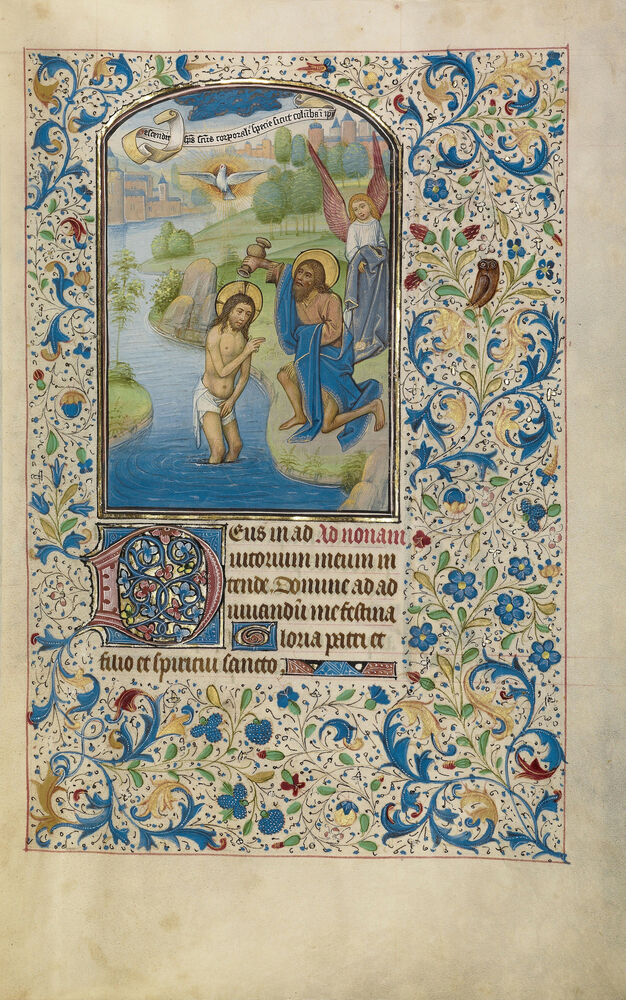 escendit sp̄s sc̄us corporali specie sicut columba ī ip̄m
Deus in ad Ad nonam
iutorium meum in
tende. Domine ad ad
iuuandū me festina
Gloria patri et
filio et spiritui sancto